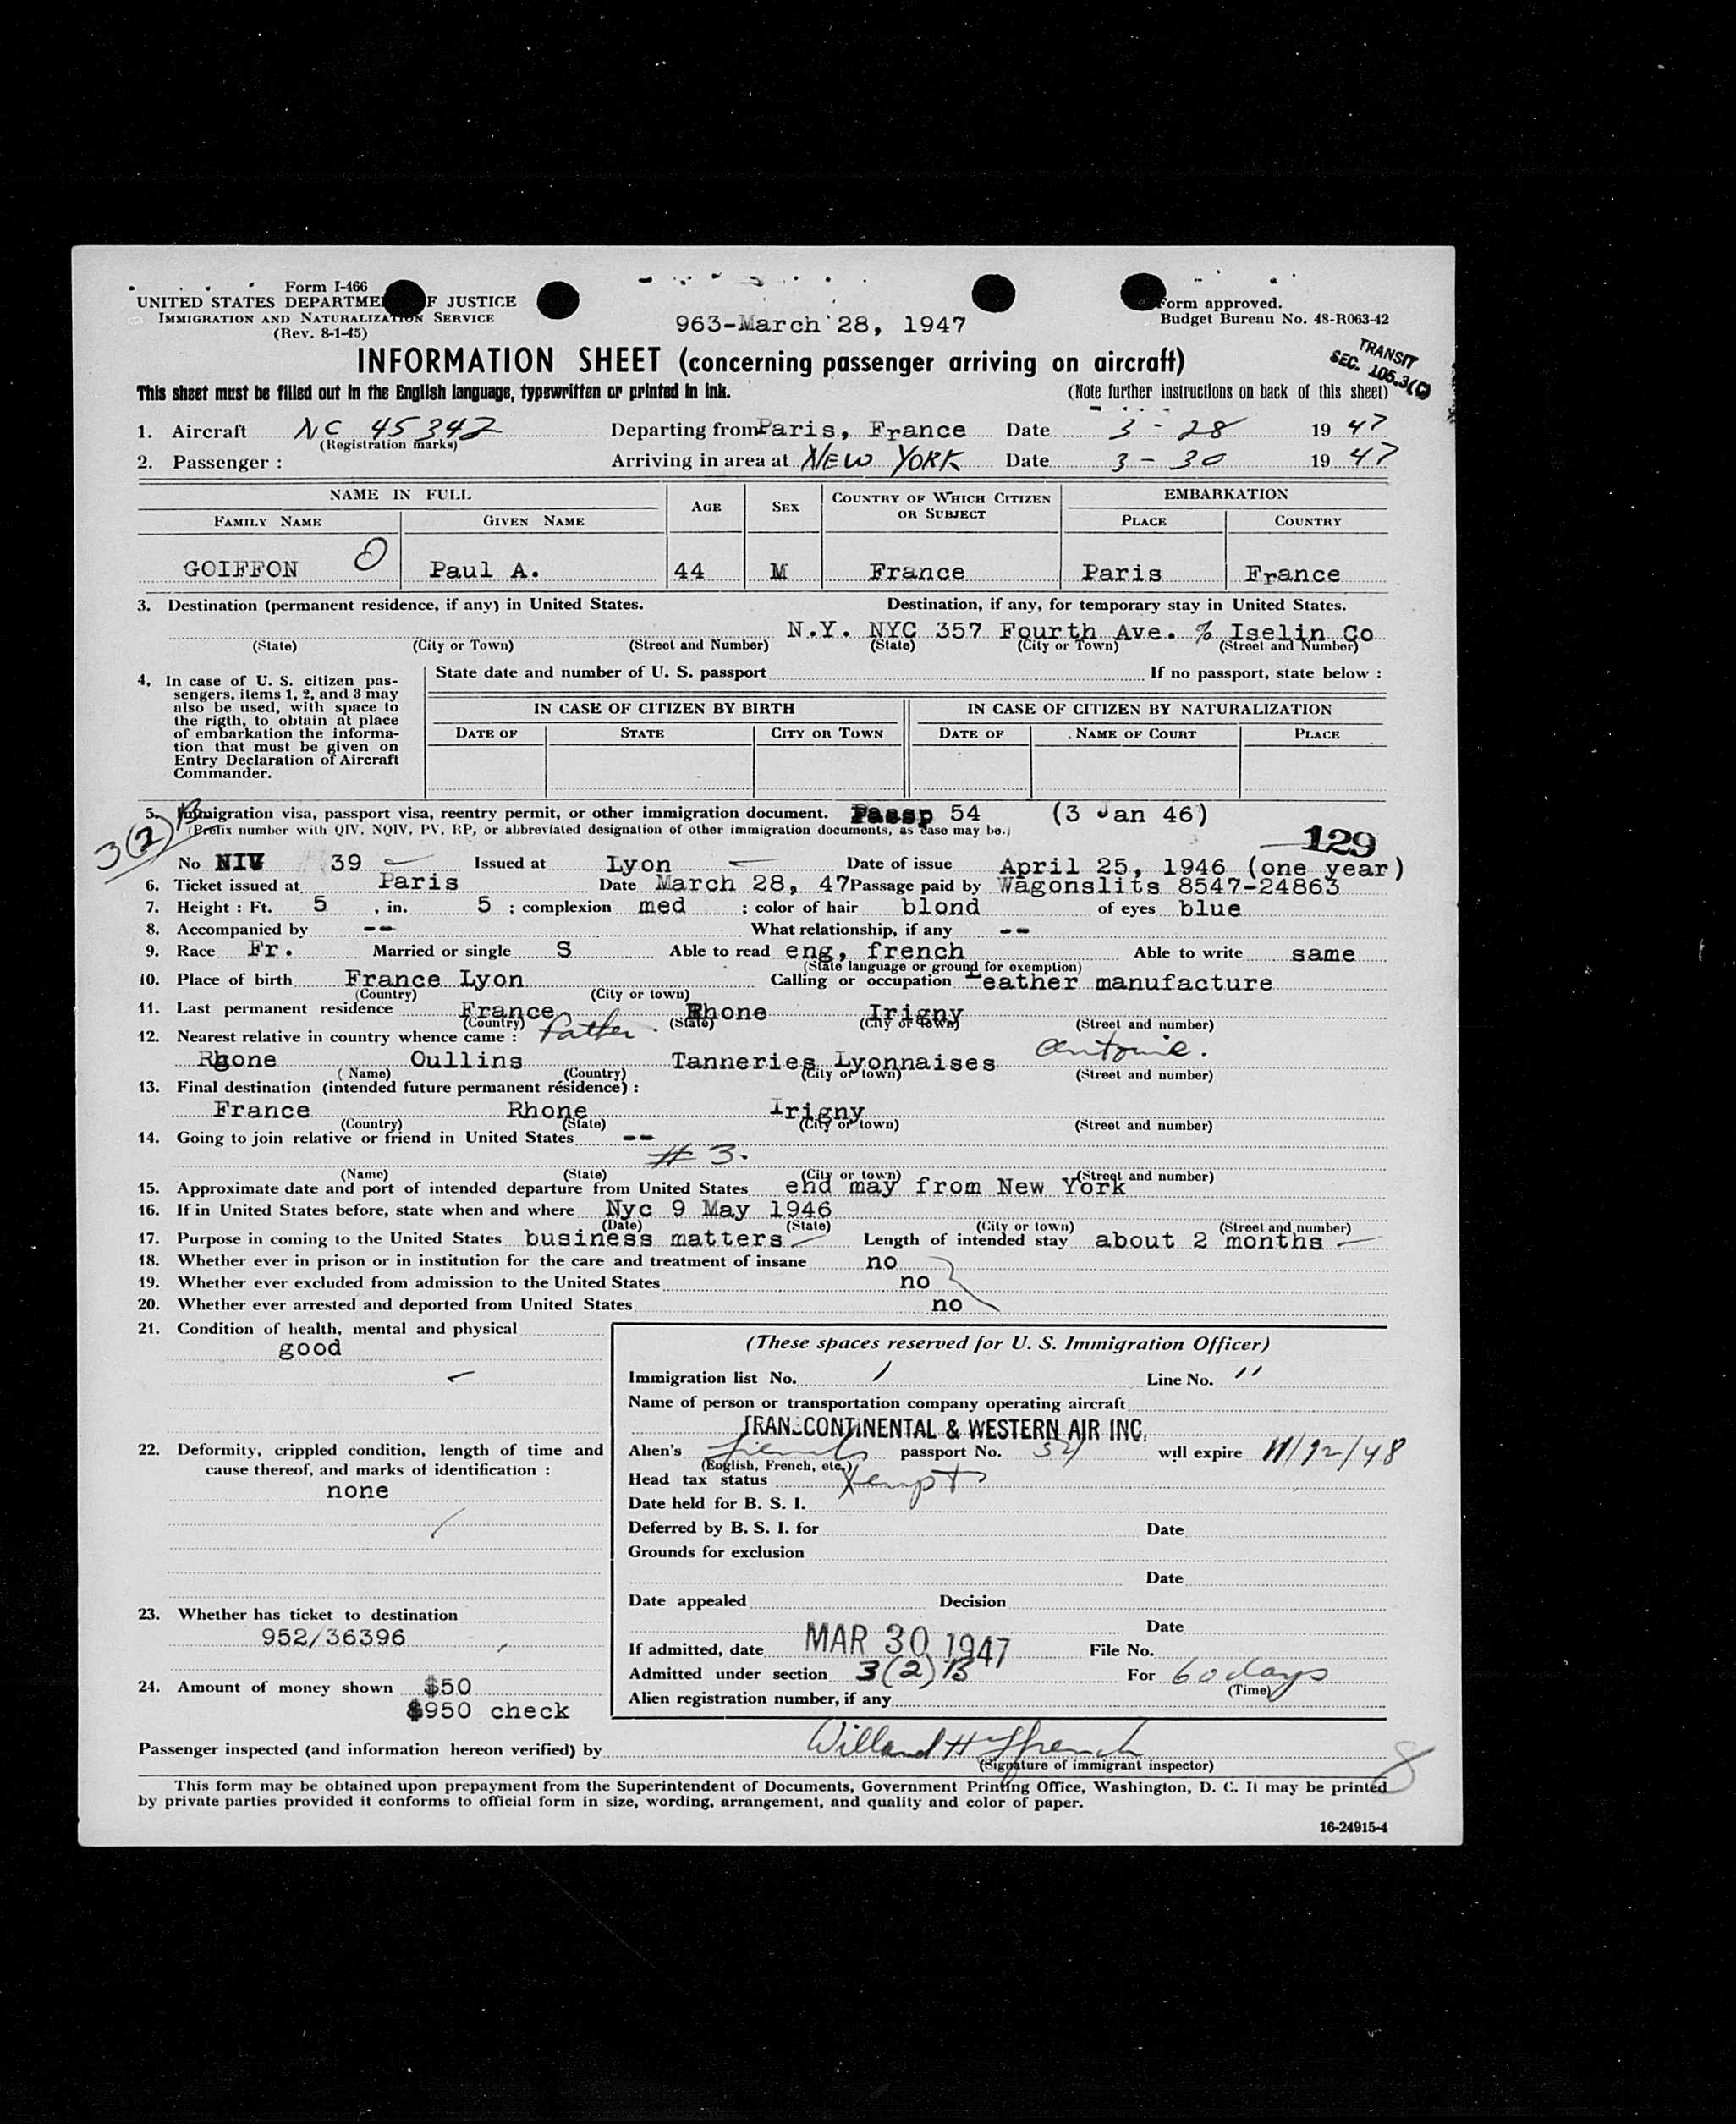 Form I-466
UNITED STATES DEPARTMENT OF JUSTICE
IMMIGRATION AND NATURALIZATION SERVICE
(Rev. 8-1-45)
963-March 28, 1947
Form approved.
Budget Bureau No. 48-R063-42
INFORMATION SHEET (concerning passenger arriving on aircraft)
TRANSIT
SEC. 105.3(C)
This sheet must be filled out in the English language, typewritten or printed in ink. (Note further instructions on back of this sheet)
1. Aircraft NC 45342 Departing from Paris, France Date 3-28 1947
(Registration marks)
2. Passenger : Arriving in area at NEW YORK Date 3-30 1947
NAME IN FULL AGE SEX COUNTRY OF WHICH CITIZEN OR SUBJECT EMBARKATION
FAMILY NAME GIVEN NAME PLACE COUNTRY
GOIFFON Paul A. 44 M France Paris France
3. Destination (permanent residence, if any) in United States. Destination, if any, for temporary stay in United States.
N.Y. NYC 357 Fourth Ave. % Iselin Co
(State) (City or Town) (Street and Number) (State) (City or Town) (Street and Number)
4. In case of U. S. citizen pas-
sengers, items 1, 2, and 3 may
also be used, with space to
the rigth, to obtain at place
of embarkation the informa-
tion that must be given on
Entry Declaration of Aircraft
Commander.
State date and number of U. S. passport If no passport, state below :
IN CASE OF CITIZEN BY BIRTH IN CASE OF CITIZEN BY NATURALIZATION
DATE OF STATE CITY OR TOWN DATE OF NAME OF COURT PLACE
5. Immigration visa, passport visa, reentry permit, or other immigration document. Passp 54 (3 Jan 46)
(Prefix number with QIV, NQIV, PV, RP, or abbreviated designation of other immigration documents, as case may be.)
3(2)B
129
No NIV 39 Issued at Lyon Date of issue April 25, 1946 (one year)
6. Ticket issued at Paris Date March 28, 47 Passage paid by Wagonslits 8547-24863
7. Height : Ft. 5 , in. 5 ; complexion med ; color of hair blond of eyes blue
8. Accompanied by -- What relationship, if any --
9. Race Fr. Married or single S Able to read eng, french Able to write same
(State language or ground for exemption)
10. Place of birth France Lyon Calling or occupation Leather manufacture
(Country) (City or town)
11. Last permanent residence France Rhone Irigny
(Country) (State) (City or town) (Street and number)
12. Nearest relative in country whence came : Father Antonie.
Rhone Oullins Tanneries Lyonnaises
( Name) (Country) (City or town) (Street and number)
13. Final destination (intended future permanent résidence) :
France Rhone Irigny
(Country) (State) (City or town) (Street and number)
14. Going to join relative or friend in United States --
# 3.
(Name) (State) (City or town) (Street and number)
15. Approximate date and port of intended departure from United States end may from New York
16. If in United States before, state when and where Nyc 9 May 1946
(Date) (State) (City or town) (Street and number)
17. Purpose in coming to the United States business matters Length of intended stay about 2 months
18. Whether ever in prison or in institution for the care and treatment of insane no
19. Whether ever excluded from admission to the United States no
20. Whether ever arrested and deported from United States no
21. Condition of health, mental and physical
good
22. Deformity, crippled condition, length of time and
cause thereof, and marks of identification :
none
23. Whether has ticket to destination
952/36396
24. Amount of money shown $50
$950 check
(These spaces reserved for U. S. Immigration Officer)
Immigration list No. 1 Line No. 11
Name of person or transportation company operating aircraft
TRANSCONTINENTAL & WESTERN AIR INC.
Alien's French passport No. 54 will expire 11/12/48
(English, French, etc.)
Head tax status Xempt
Date held for B. S. I.
Deferred by B. S. I. for Date
Grounds for exclusion
Date
Date appealed Decision
Date
If admitted, date MAR 30 1947 File No.
Admitted under section 3(2)B For 60 days
(Time)
Alien registration number, if any
Passenger inspected (and information hereon verified) by Willard H Ffrench
(Signature of immigrant inspector)
8
This form may be obtained upon prepayment from the Superintendent of Documents, Government Printing Office, Washington, D. C. It may be printed
by private parties provided it conforms to official form in size, wording, arrangement, and quality and color of paper.
16-24915-4